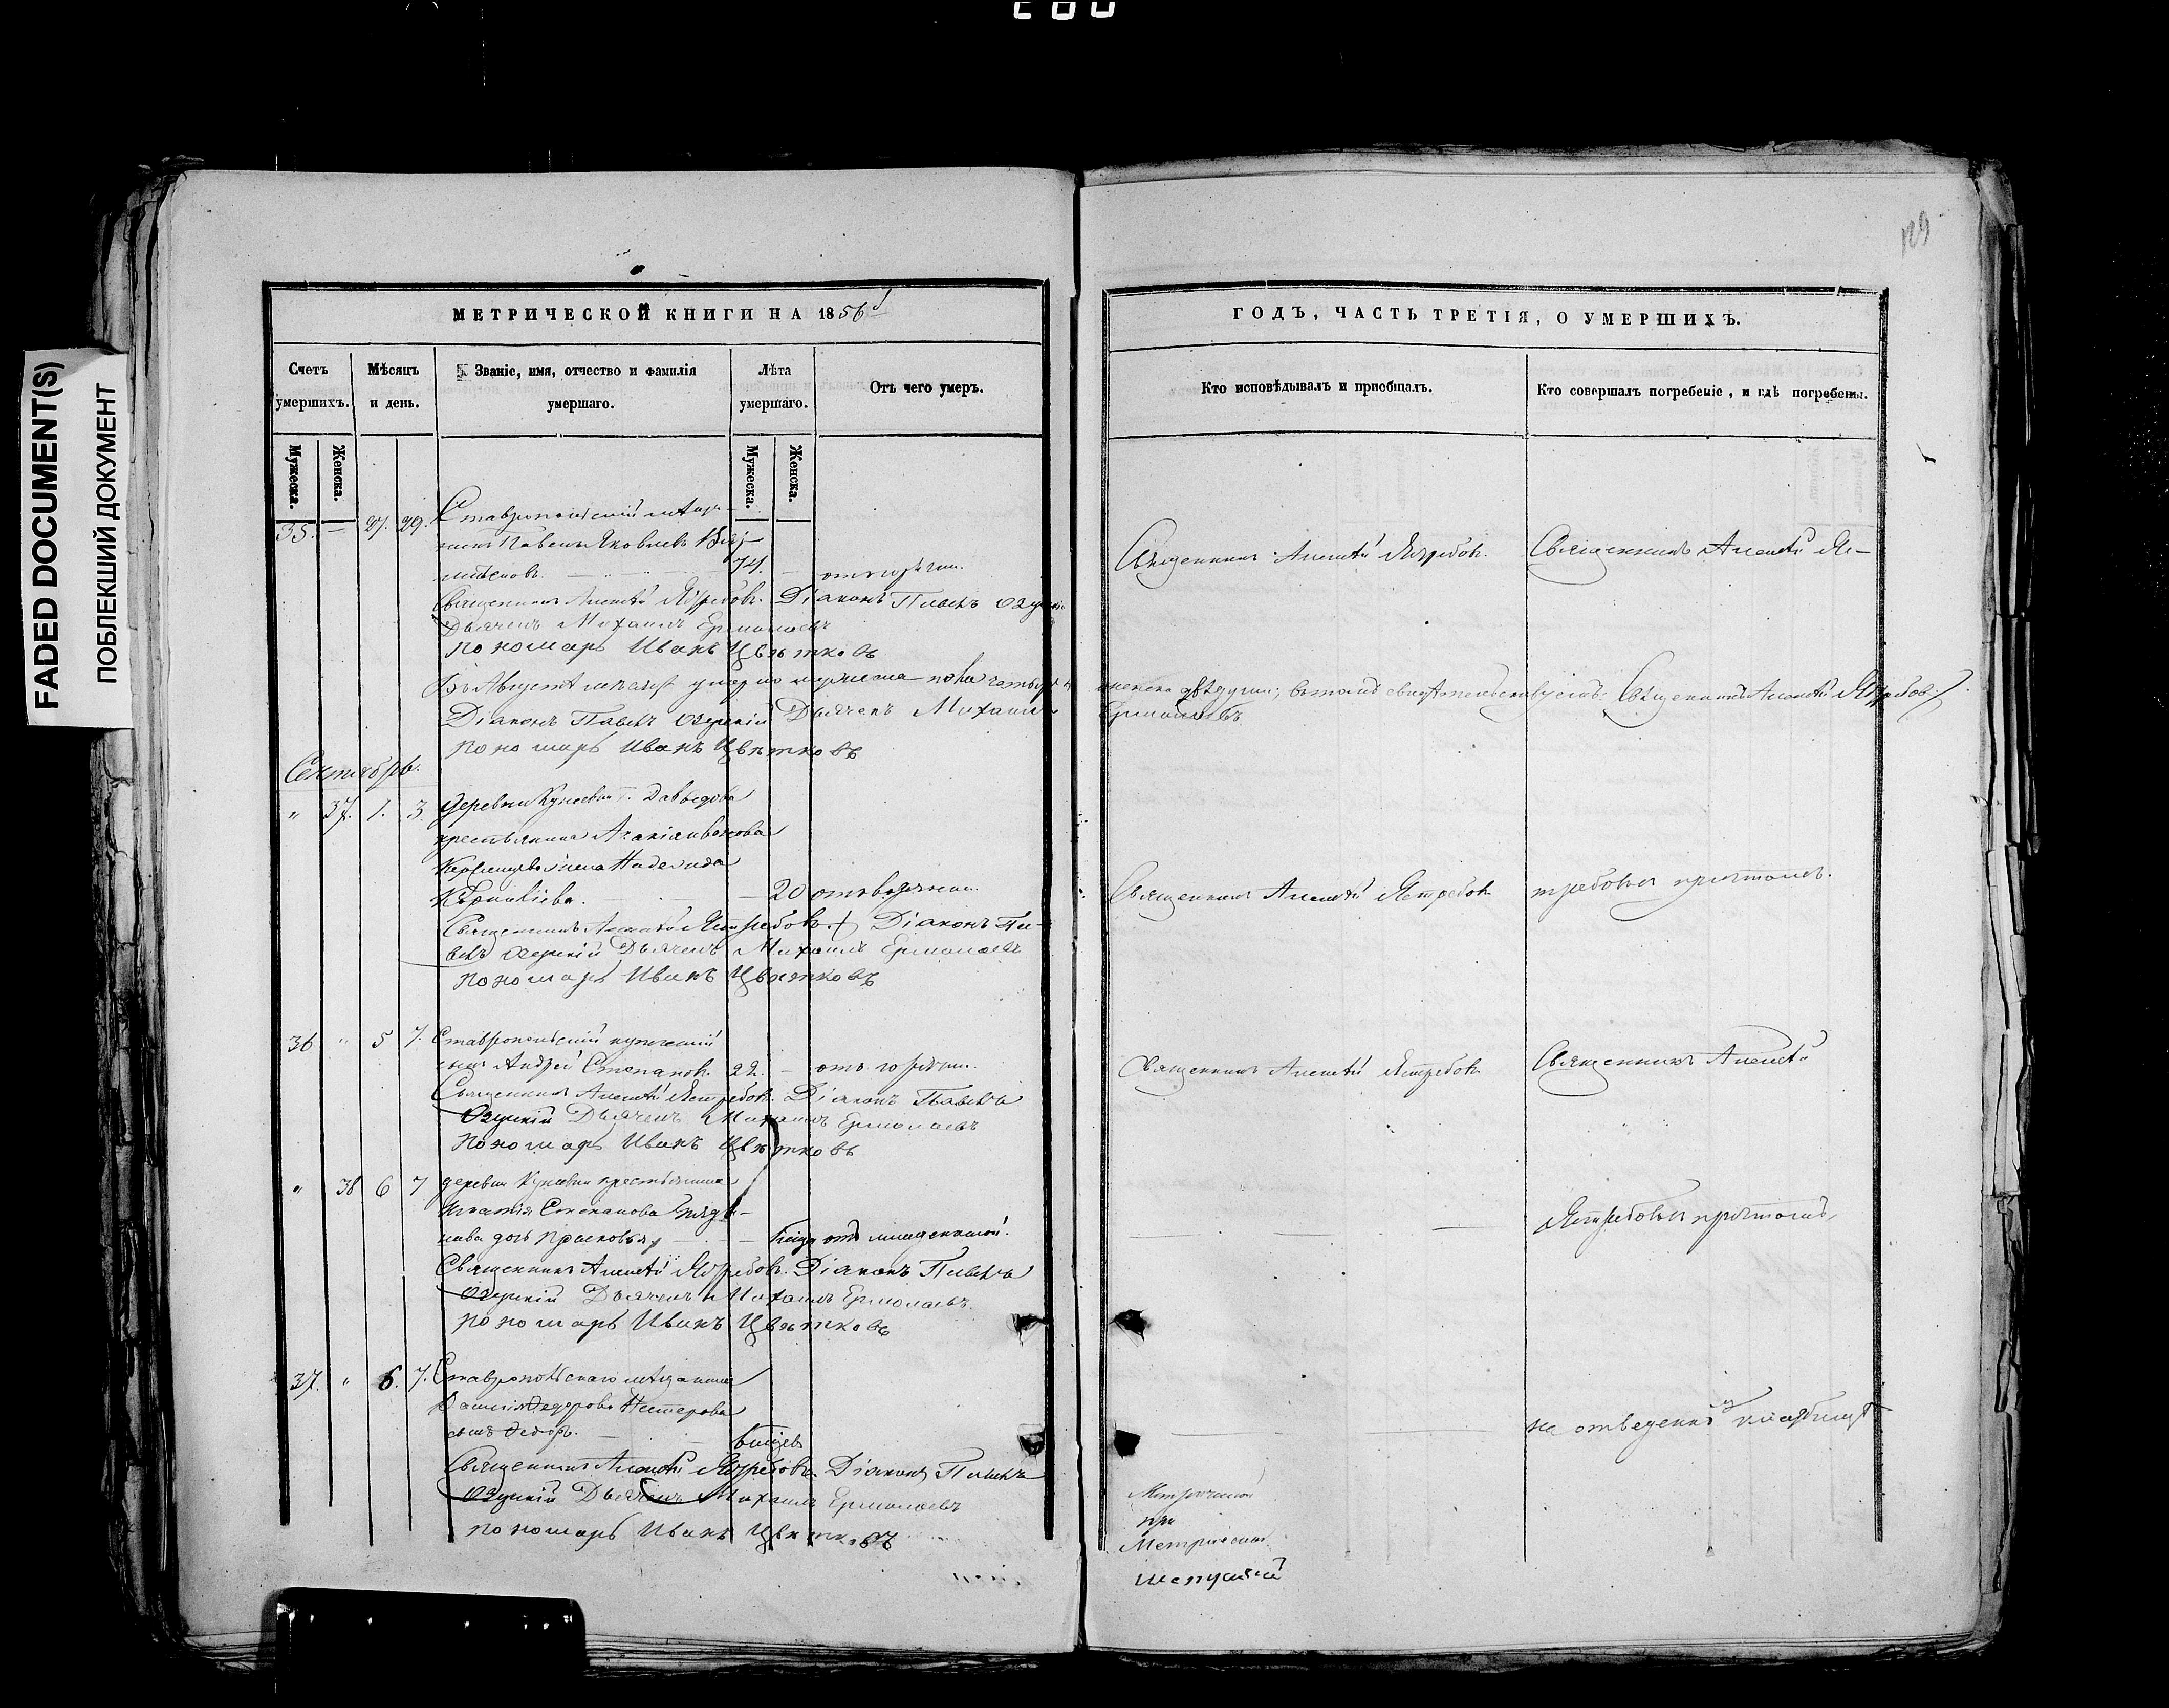 FADED DOCUMENT(S)
ПОБЛЕКШИЙ ДОКУМЕНТ
129
МЕТРИЧЕСКОЙ КНИГИ НА 1856
Счетъ умершихъ.
Мѣсяцъ и день.
Званіе, имя, отчество и фамилія умершаго.
Лѣта умершаго.
Отъ чего умеръ.
Мужеска.
Женска.
Мужеска.
Женска.
35. — 27. 29. Ставропольскій мѣща-
нинъ Павелъ Яковлевъ
74. — отъ горячки.
Священникъ Алексѣй Ястребовъ. Діаконъ Павелъ Озерскій
Дьячекъ Михаилъ Ермолаевъ
Пономарь Иванъ Цвѣтковъ
Въ Августѣ мѣсяцѣ умерло мужеска пола четыре
Діаконъ Павелъ Озерскій Дьячекъ Михаилъ
Пономарь Иванъ Цвѣтковъ
Сентябрь.
" 37. 1. 3. Деревни Кунеевки г. Давыдова
крестьянина
жена Надежда
20 отъ водянки.
Священникъ Алексѣй Ястребовъ Діаконъ Па-
велъ Озерскій Дьячекъ Михаилъ Ермолаевъ
Пономарь Иванъ Цвѣтковъ
36 " 5 7. Ставропольскій купеческій
сынъ Андрей Степановъ. 22. — отъ горячки.
Священникъ Алексѣй Ястребовъ. Діаконъ Павелъ
Озерскій Дьячекъ Михаилъ Ермолаевъ
Пономарь Иванъ Цвѣтковъ
" 38 6 7 деревни Кунеевки крестьянина
Игнатія Степанова
дочь Прасковья — отъ младенческой.
Священникъ Алексѣй Ястребовъ. Діаконъ Павелъ
Озерскій Дьячекъ Михаилъ Ермолаевъ
Пономарь Иванъ Цвѣтковъ
37. " 6. 7. Ставропольскаго мѣщанина
Федорова Нестерова
сынъ Федоръ.
Священникъ Алексѣй Ястребовъ. Діаконъ Павелъ
Озерскій Дьячекъ Михаилъ Ермолаевъ
Пономарь Иванъ Цвѣтковъ
ГОДЪ, ЧАСТЬ ТРЕТІЯ, О УМЕРШИХЪ.
Кто исповѣдывалъ и пріобщалъ.
Кто совершалъ погребеніе, и гдѣ погребены.
Священникъ Алексѣй Ястребовъ. Священникъ Алексѣй Яс-
женска двѣ души; въ томъ свидѣтельствуемъ: Священникъ Алексѣй Ястребовъ
Ермолаевъ
Священникъ Алексѣй Ястребовъ требовъ съ причтомъ.
Священникъ Алексѣй Ястребовъ Священникъ Алексѣй
Ястребовъ съ причтомъ,
на отведенномъ кладбищѣ